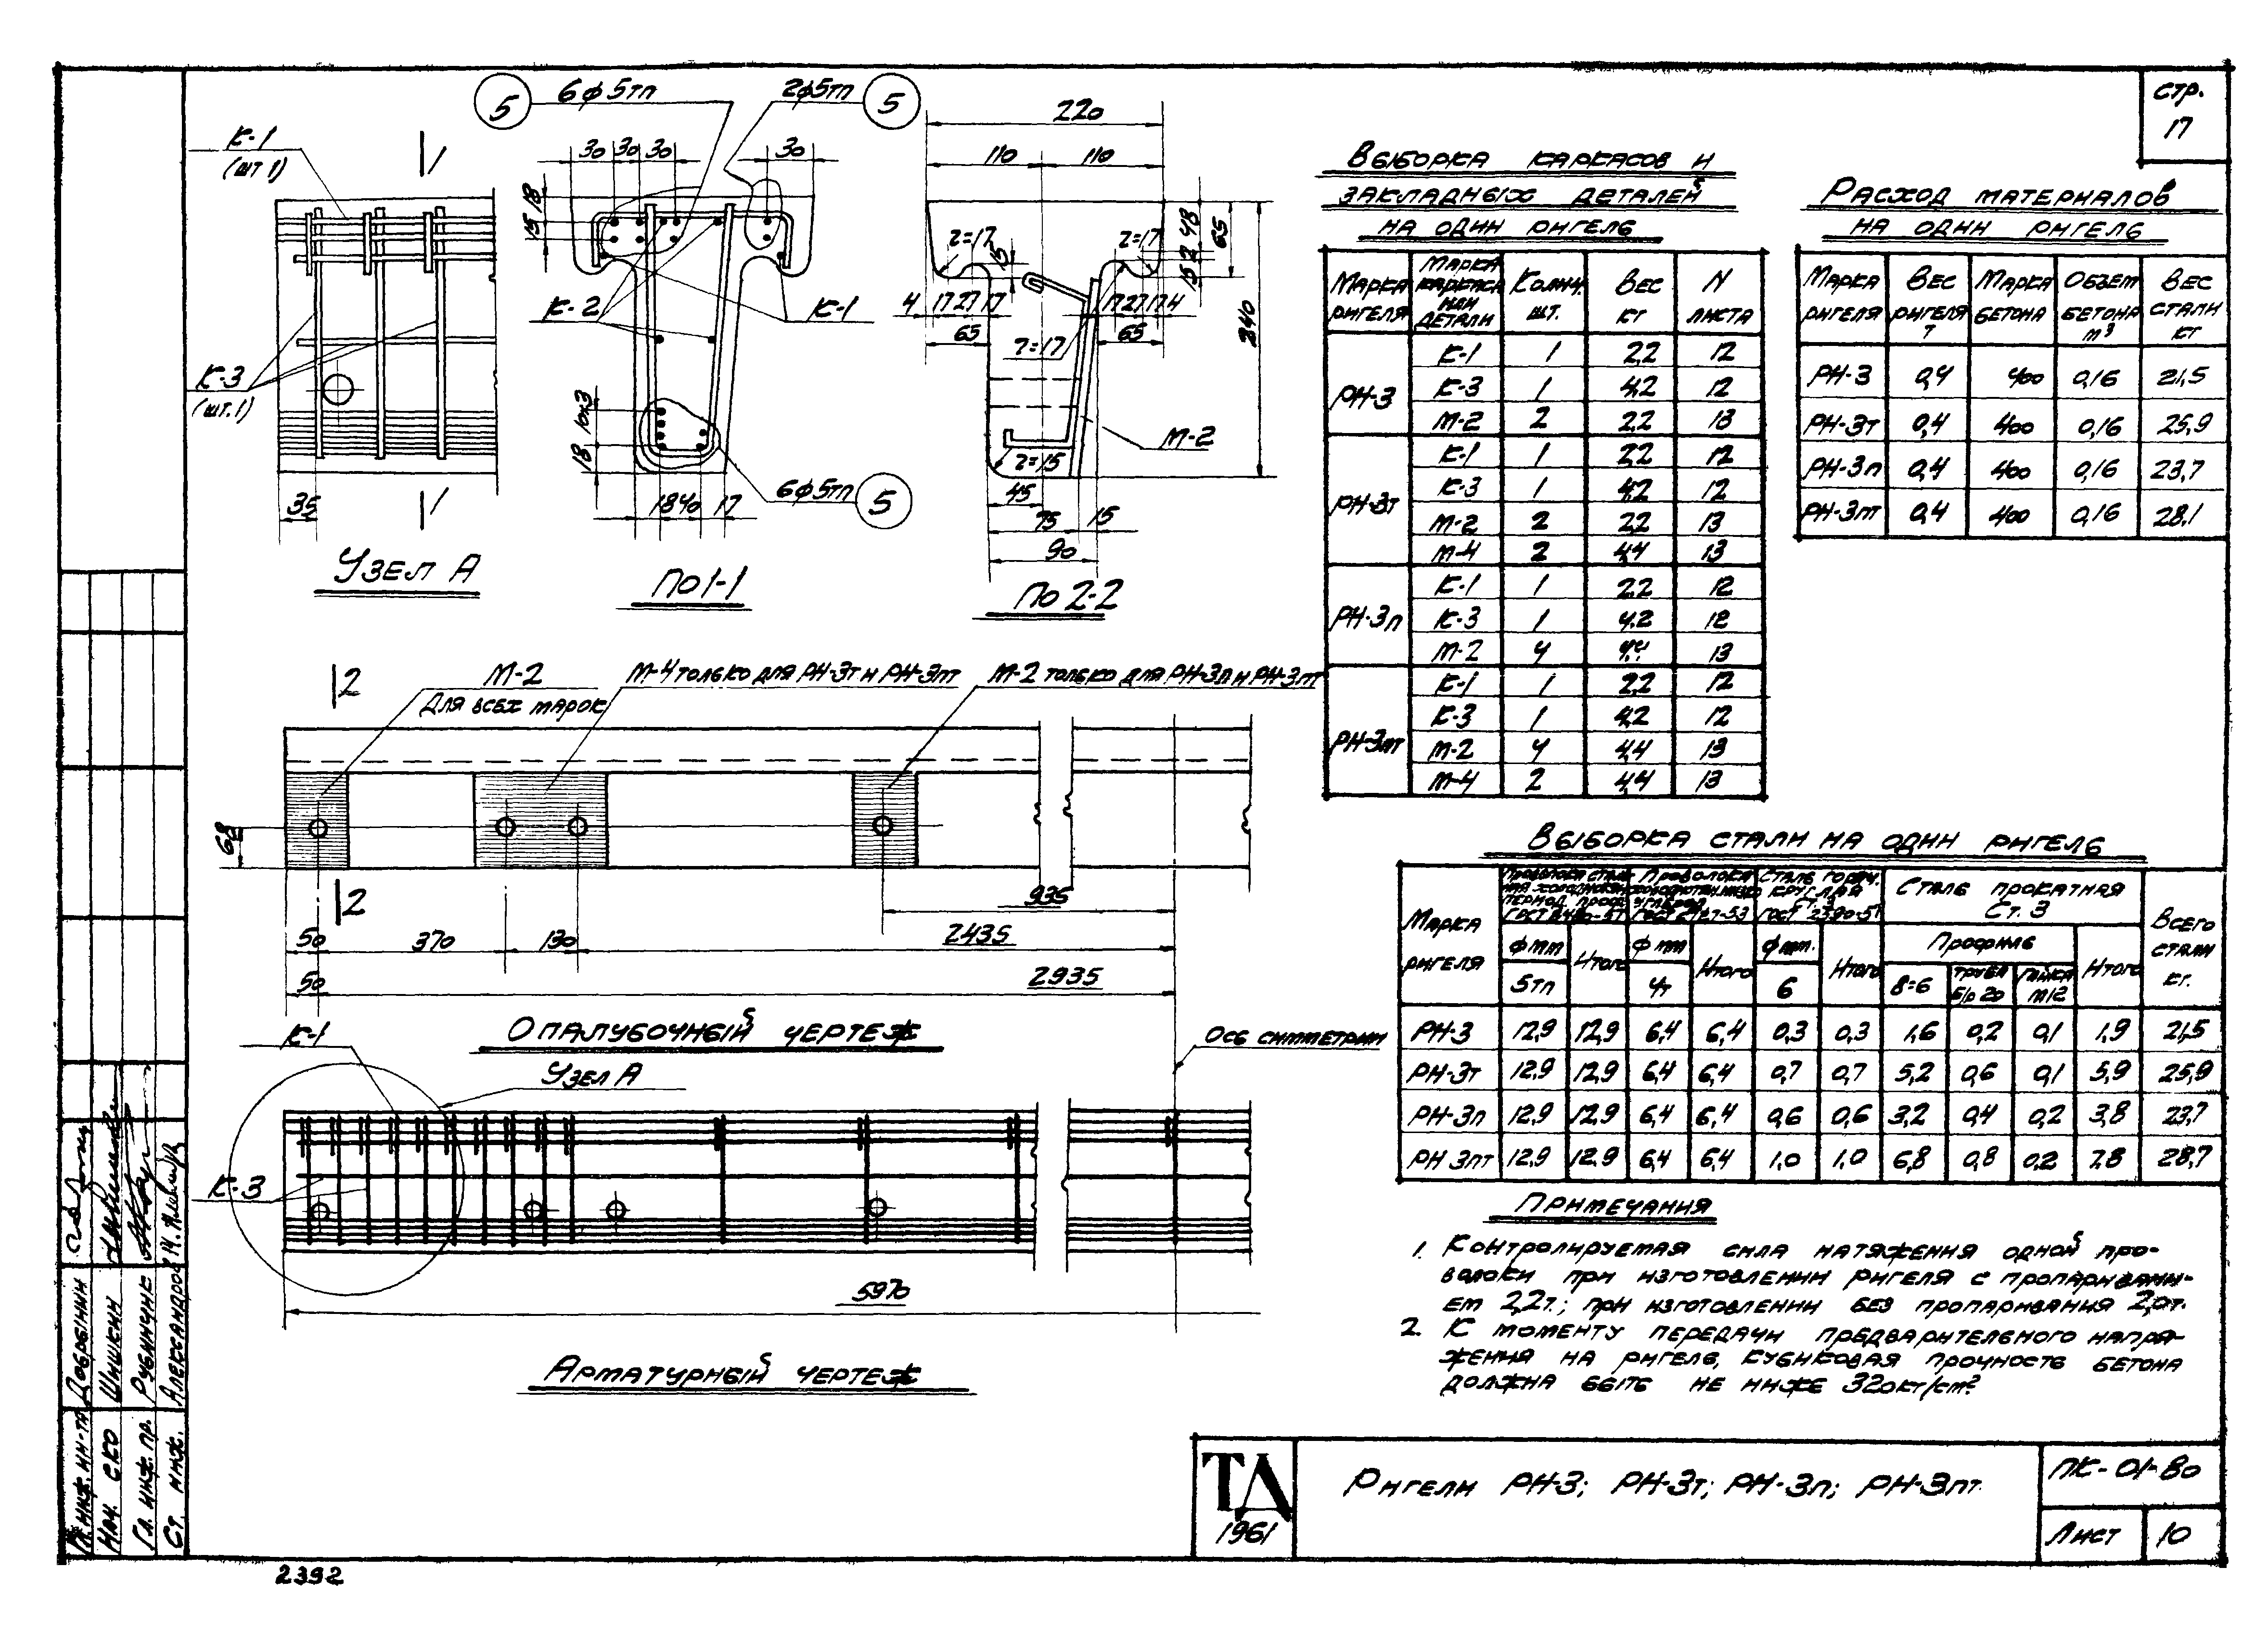 стр.
17
5
6ф5тп
2ф5тп
5
К-1
(шт 1)
1
30 30 30
30
18
15
К-2
К-1
К-3
(шт.1)
10x3
18
18 40 17
6ф5тп
5
35
1
Узел А
По 1-1
220
110
110
48
2
15
65
240
r=17
r=17
15
4 17 27 17
17 27 17 4
65
65
r=17
М-2
r=15
45
75
15
90
По 2-2
Выборка каркасов и
закладных деталей
на один ригель
Марка ригеля
Марка каркаса или детали
Колич. шт.
Вес кг
N листа
РН-3
К-1 1 2,2 12
К-3 1 4,2 12
М-2 2 2,2 13
РН-3т
К-1 1 2,2 12
К-3 1 4,2 12
М-2 2 2,2 13
М-4 2 4,4 13
РН-3п
К-1 1 2,2 12
К-3 1 4,2 12
М-2 4 4,4 13
РН-3пт
К-1 1 2,2 12
К-3 1 4,2 12
М-2 4 4,4 13
М-4 2 4,4 13
Расход материалов
на один ригель
Марка ригеля
Вес ригеля т
Марка бетона
Объем бетона м³
Вес стали кг
РН-3 0,4 400 0,16 21,5
РН-3т 0,4 400 0,16 25,9
РН-3п 0,4 400 0,16 23,7
РН-3пт 0,4 400 0,16 28,1
2
М-2
для всех марок
М-4 только для РН-3т и РН-3пт
М-2 только для РН-3п и РН-3пт
68
2
935
50
370
130
2435
50
2935
Опалубочный чертеж
Ось симметрии
К-1
Узел А
К-3
5970
Арматурный чертеж
Выборка стали на один ригель
Марка ригеля
Проволока
Сталь горяч.
круглая
Ст. 3
ГОСТ 2590-51
Сталь прокатная
Ст. 3
Всего стали кг.
ф мм
Итого
ф мм
Итого
ф мм.
Итого
Профиль
Итого
5тп
4т
6
δ=6
труба
гайка
М12
РН-3 12,9 12,9 6,4 6,4 0,3 0,3 1,6 0,2 0,1 1,9 21,5
РН-3т 12,9 12,9 6,4 6,4 0,7 0,7 5,2 0,6 0,1 5,9 25,9
РН-3п 12,9 12,9 6,4 6,4 0,6 0,6 3,2 0,4 0,2 3,8 23,7
РН 3пт 12,9 12,9 6,4 6,4 1,0 1,0 6,8 0,8 0,2 7,8 28,7
Примечания
1. Контролируемая сила натяжения одной про-
волоки при изготовлении ригеля с пропаривани-
ем 2,2т.; при изготовлении без пропаривания 2,0т.
2. К моменту передачи предварительного напря-
жения на ригель, кубиковая прочность бетона
должна быть не ниже 320кг/см²
ТД
1961
Ригели РН-3; РН-3т; РН-3п; РН-3пт.
ПК-01-80
Лист
10
Гл. инж. ин-та Добрынин
Нач. СКО Шишкин
Гл. инж. пр. Рубинчик
Ст. инж. Александров
2392